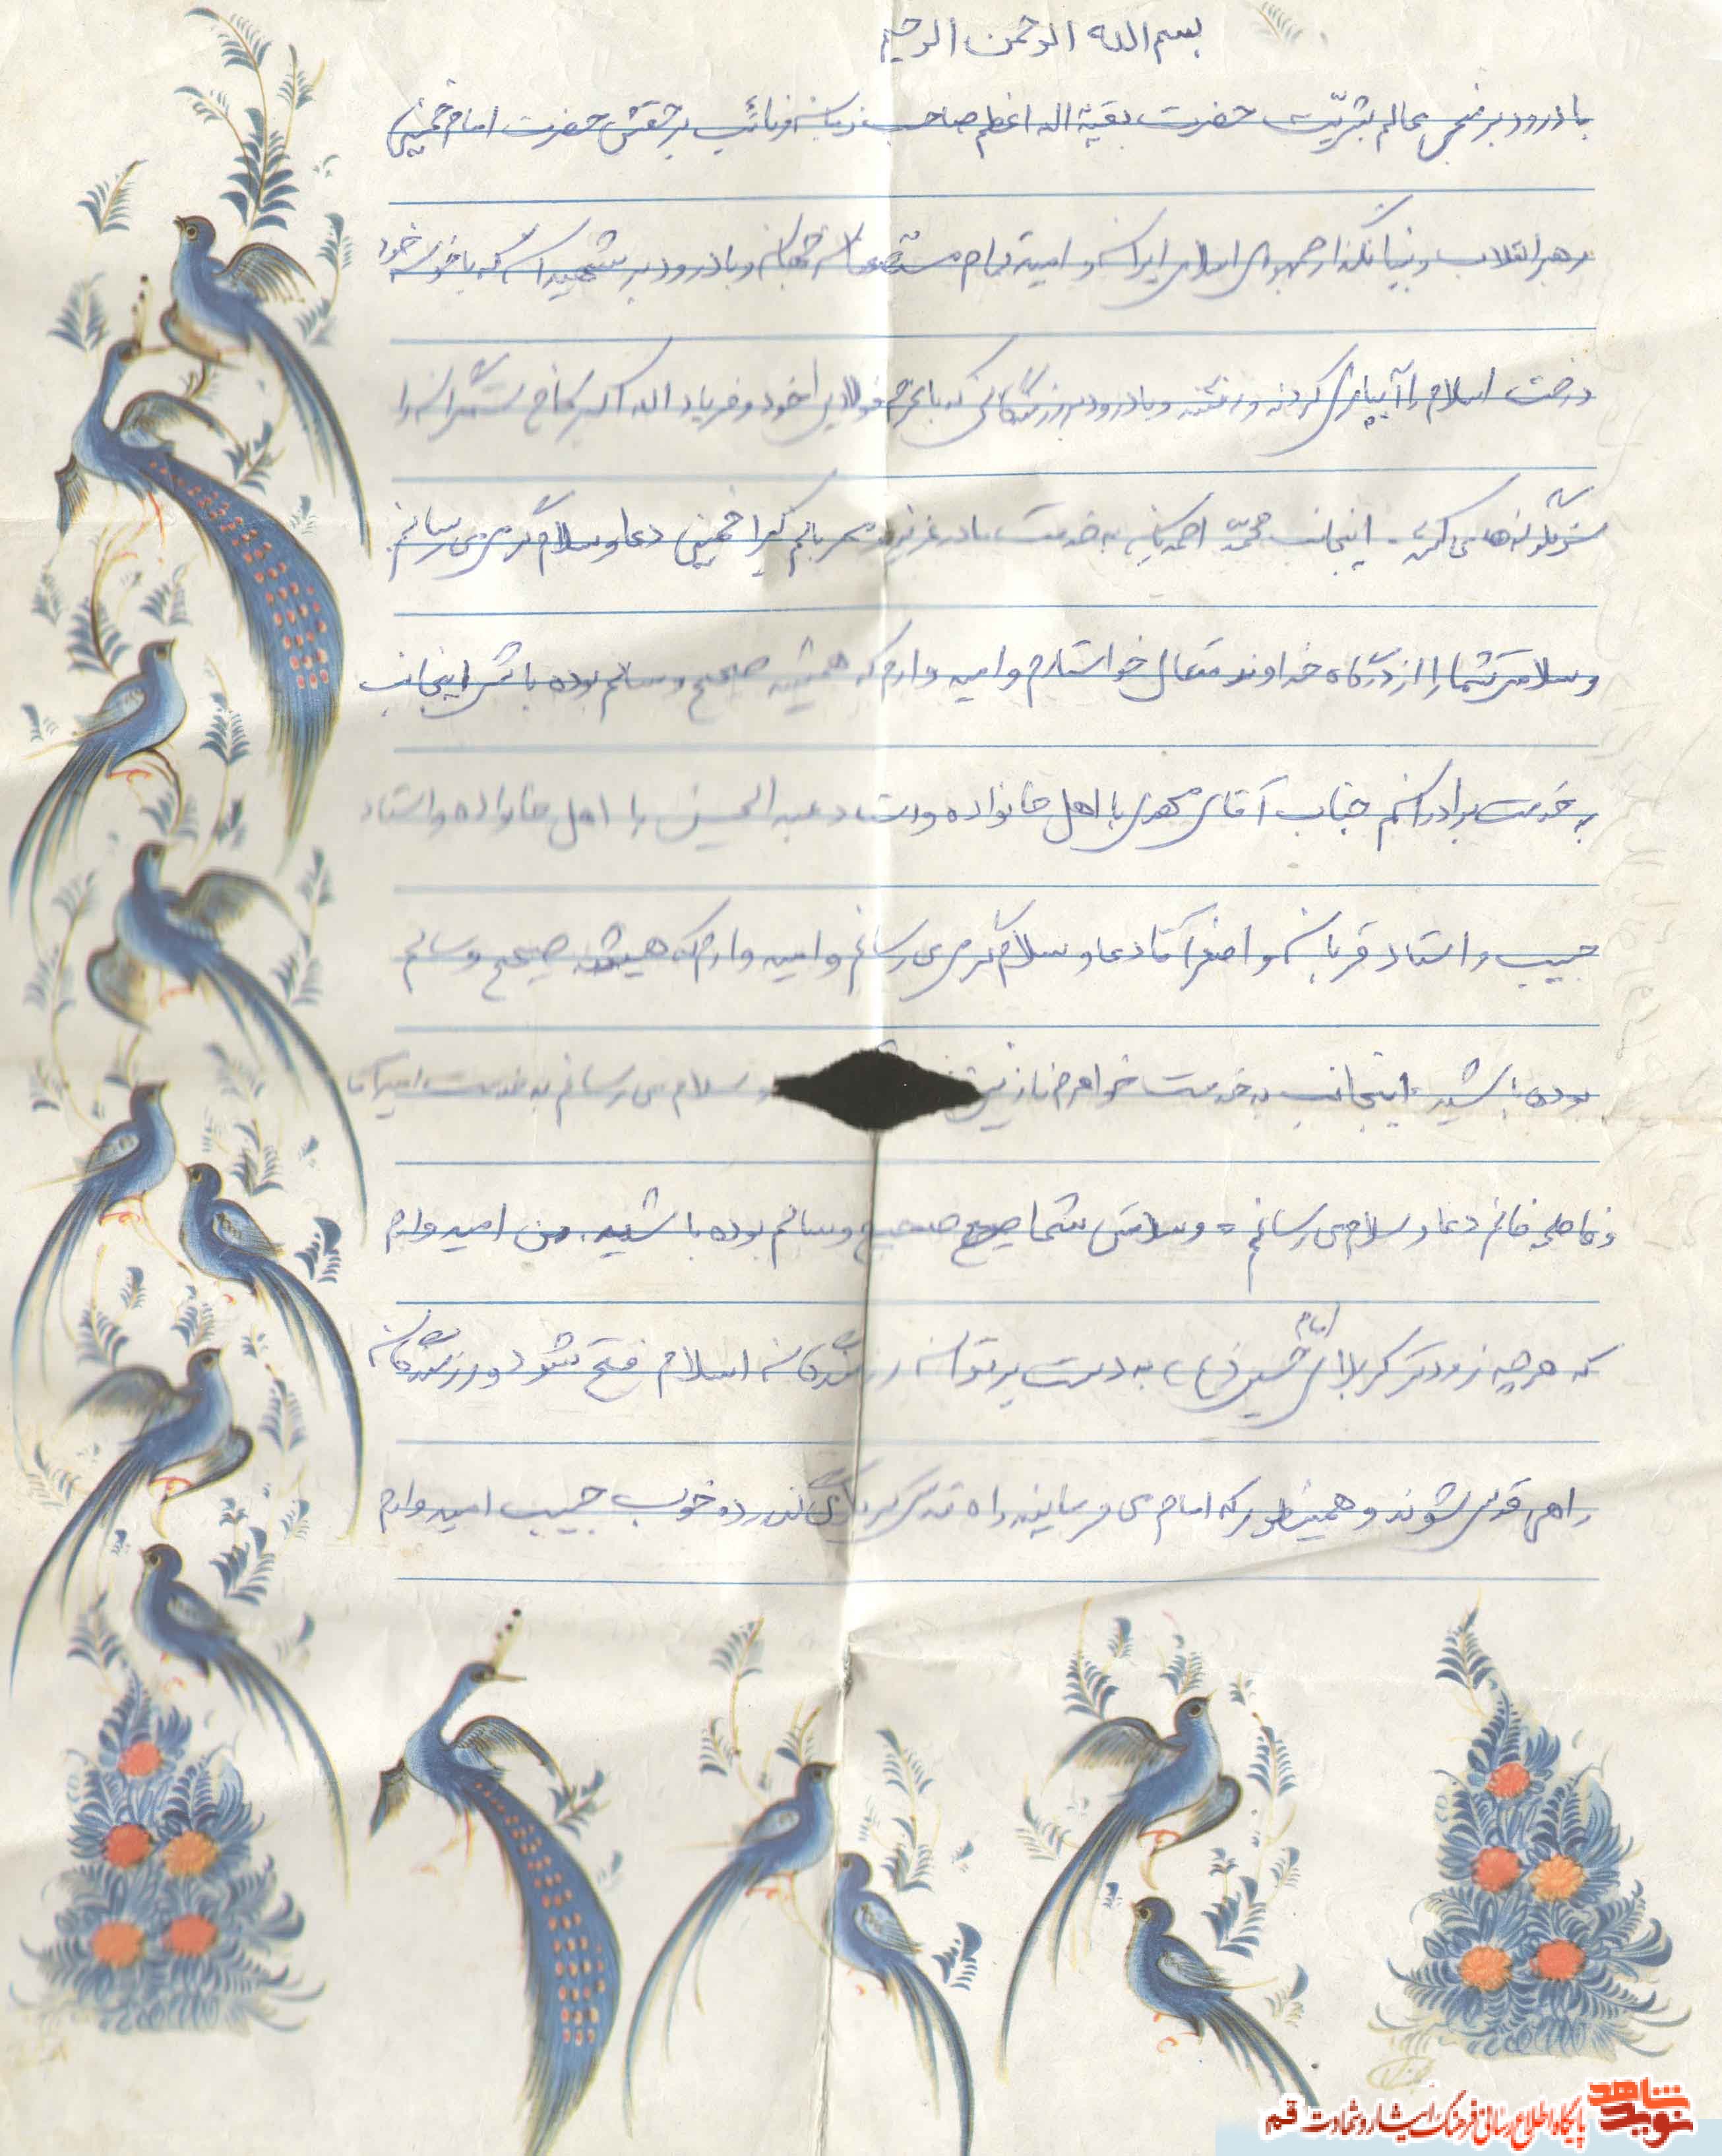 بسم الله الرحمن الرحیم
با درود بر منجی عالم بشریّت حضرت بقیة اله اعظم صاحب زمان و نائب بر حقش حضرت امام خمینی
رهبر انقلاب و بنیانگذار جمهوری اسلامی ایران و امید تمام مستضعفان جهان و با درود بر شهیدان که با خون خود
درخت اسلام را آبیاری کردند و رفتند و با درود بر رزمندگانی که با عزم فولادین خود و فریاد اله اکبر کاخ ستمگران را
سرنگون می کنند. اینجانب محمّد به خدمت مادر عزیز و مهربانم کبرا خمینی دعا و سلام گرم می رسانم
و سلامتی شما را از درگاه خداوند متعال خواستارم و امید وارم که همیشه صحیح و سالم بوده باشی اینجانب
به خدمت برادرانم جناب آقای مهدی با اهل خانواده و استاد عبدالحسین با اهل خانواده و استاد
حبیب و استاد قربان و اصغر آقا دعا و سلام گرم می رسانم و امید وارم که همیشه صحیح و سالم
بوده باشید اینجانب به خدمت خواهرم نازنین و سلام می رسانم به خدمت امیر آقا
و فاطمه خانم دعا و سلام می رسانم و سلامتی شما صحیح و سالم بوده باشید. من امیدوارم
که هر چه زودتر کربلای امام حسین (ع) به دست پر توان رزمندگان اسلام فتح شود و رزمندگان
راهی قدس شوند و همینطور که امام می فرمایند راه قدس از کربلا می گذرد و خوب حبیب امیدوارم
نوید شاهد
پایگاه اطلاع رسانی فرهنگ ایثار و شهادت قم